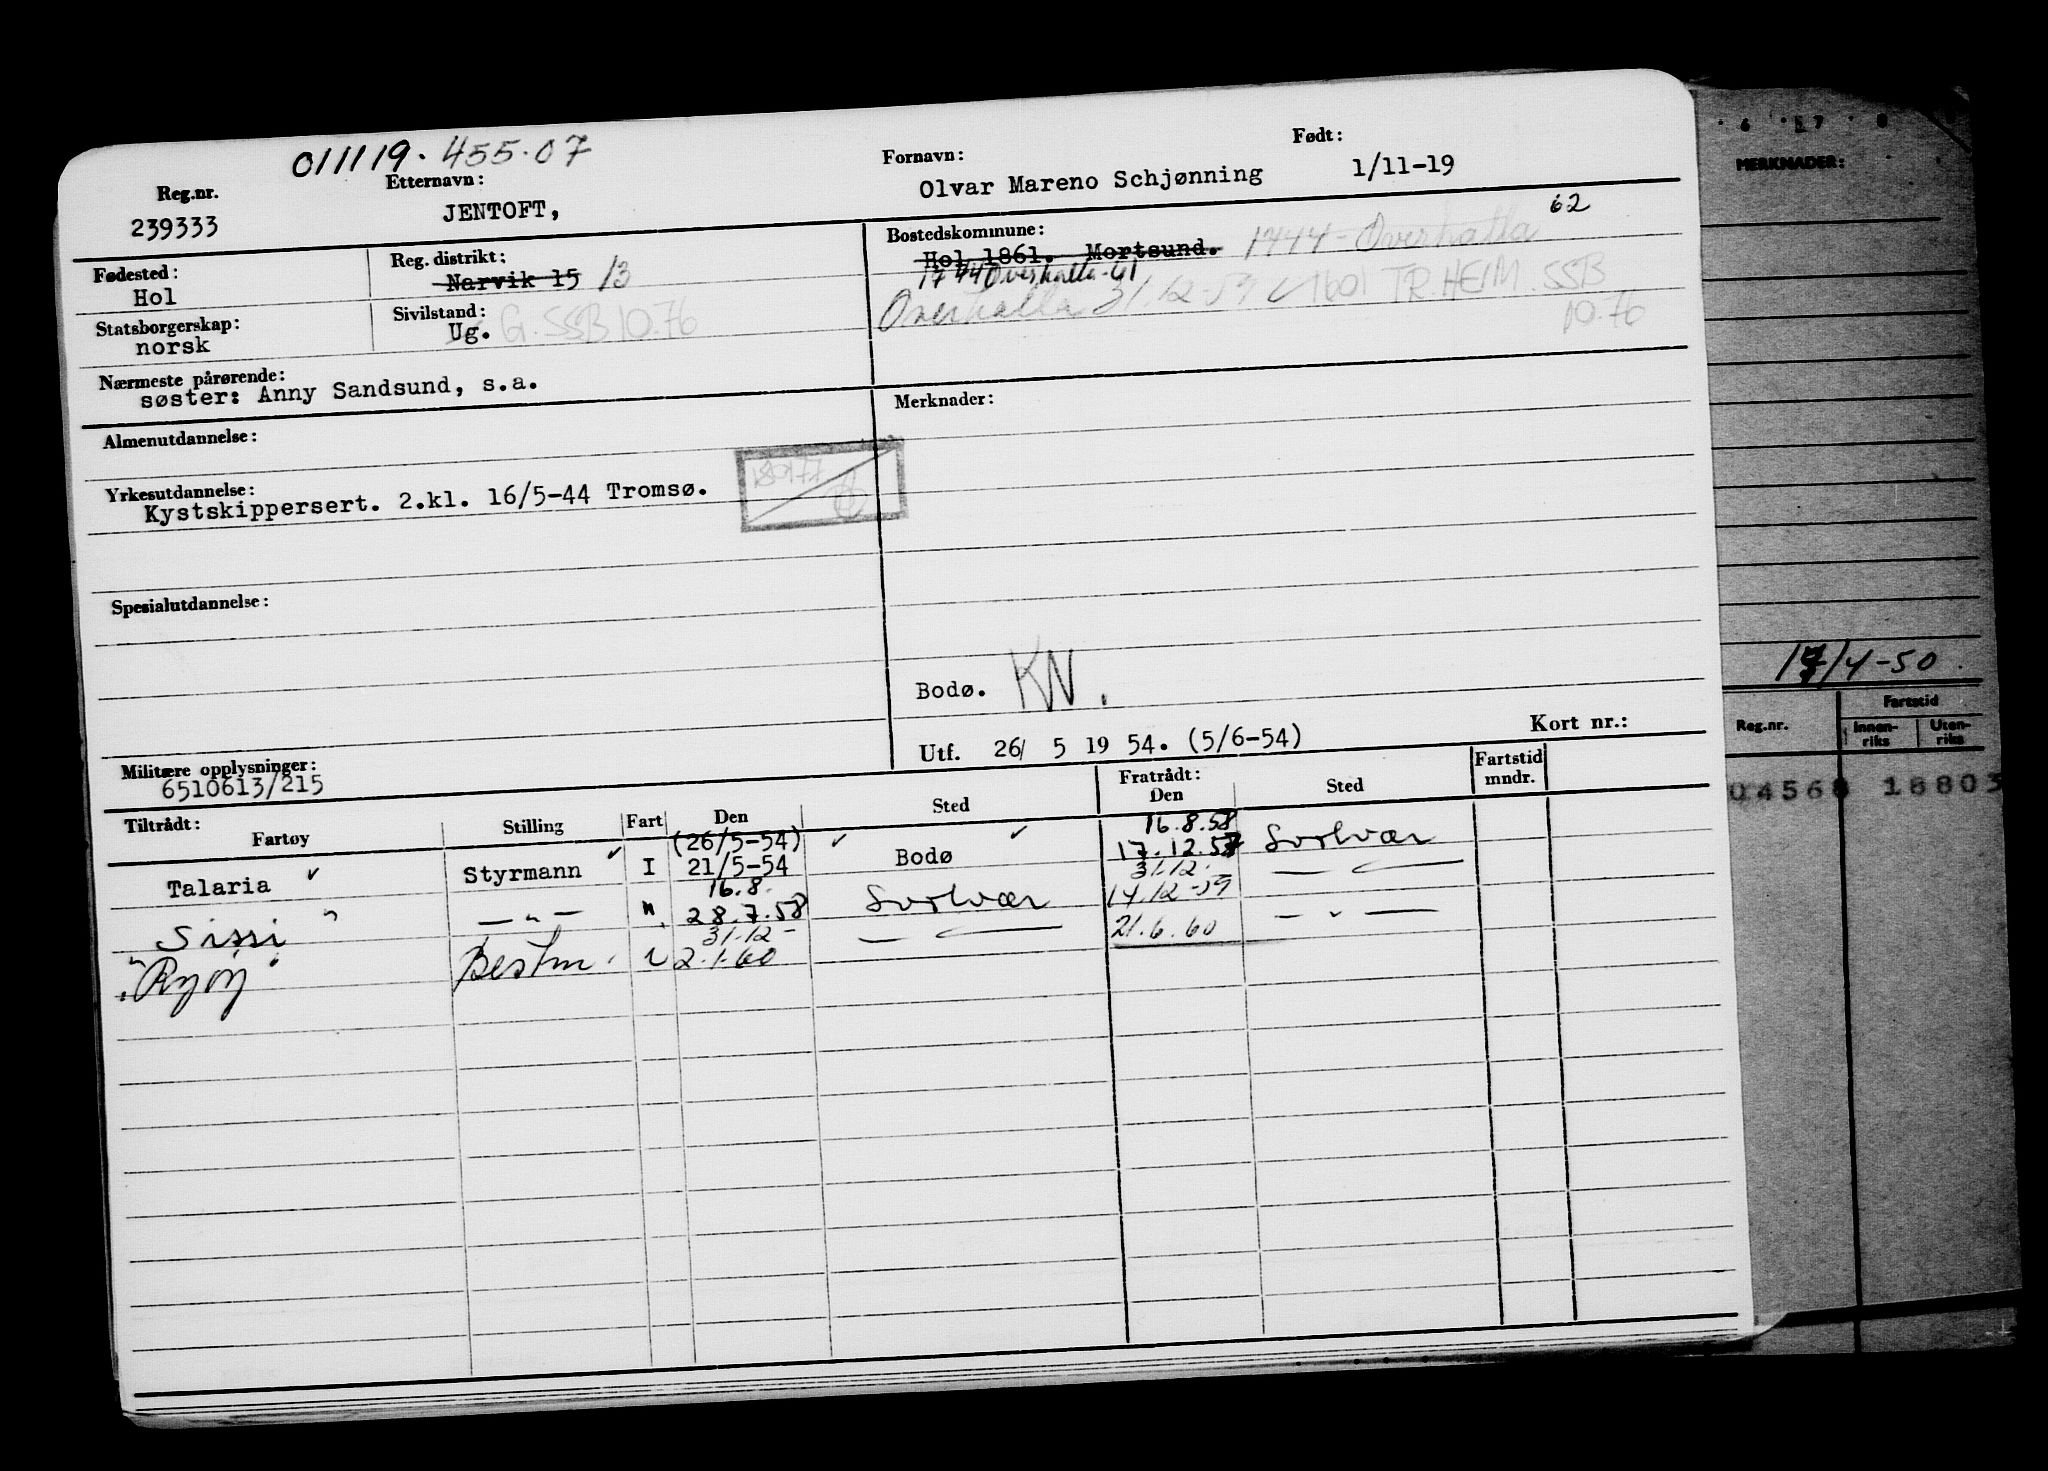 011119. 455.07
Reg.nr. Etternavn: Fornavn: Født:
239333 JENTOFT, Olvar Mareno Schjønning 1/11-19
62
Fødested: Reg. distrikt: Bostedskommune:
Hol Narvik 15 13 Hol 1861. Mortsund. 1744 - Overhalla
1744 Overhalla-61
Statsborgerskap: Sivilstand: Overhalla 31.12-59 1601 TR.HEIM. SSB
norsk Ug. G. SSB 10.76 10.76
Nærmeste pårørende:
søster: Anny Sandsund, s.a.
Almenutdannelse: Merknader:
Yrkesutdannelse:
Kystskippersert. 2.kl. 16/5-44 Tromsø.
Spesialutdannelse:
Bodø. KN.
Utf. 26/ 5 19 54. (5/6-54) Kort nr.:
Militære opplysninger:
6510613/215
Tiltrådt: Fratrådt: Fartstid mndr.
Fartøy Stilling Fart Den Sted Den Sted
(26/5-54) 16.8.58
Talaria Styrmann I 21/5-54 Bodø 17.12.57 Svolvær
16.8. 31.12.
Sissi — " — " 28.7.58 Svolvær 14.12-59 — " —
31.12-
Bestm. 2.1.60 — " — 21.6.60 — " —
6 7 8
MERKNADER:
17/4-50.
Reg.nr. Fartstid
Innen-riks Uten-riks
04568 18803